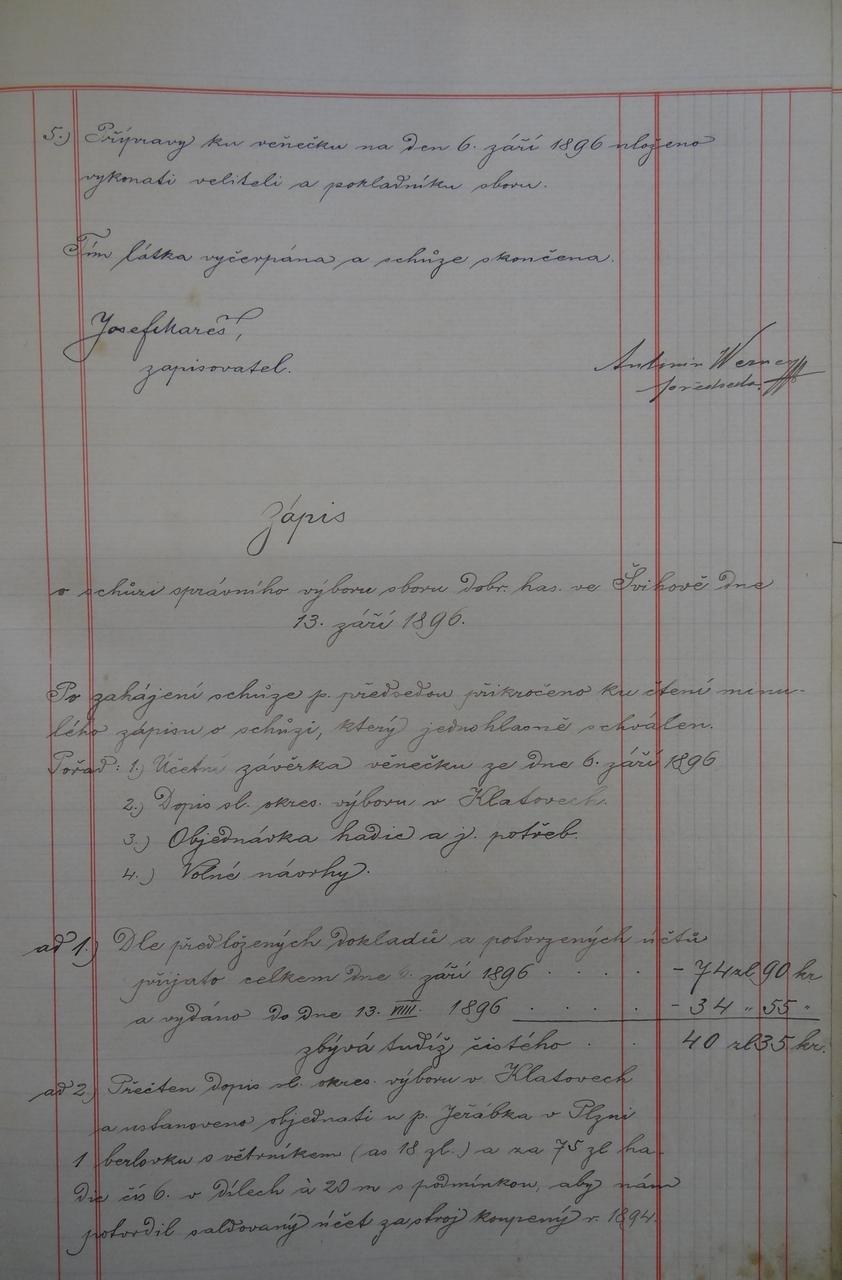 5.) Přípravy ku věnečku na den 6. září 1896 uloženo
vykonati veliteli a pokladníku sboru.
Tím látka vyčerpána a schůze skončena.
Josef Mareš,
zapisovatel.
Antonín Werner
předseda.
Zápis
o schůzi správního výboru sboru dobr. has. ve Švihově dne
13. září 1896.
Po zahájení schůze p. předsedou přikročeno ku čtení minu-
lého zápisu o schůzi, který jednohlasně schválen.
Pořad: 1.) Účetní závěrka věnečku ze dne 6. září 1896
2.) Dopis sl. okres. výboru v Klatovech.
3.) Objednávka hadic a j. potřeb.
4.) Volné návrhy.
ad 1.) Dle předložených dokladů a potvrzených účtů
přijato celkem dne 6. září 1896 . . . . - 74 zl 90 kr
a vydáno do dne 13. VIIII. 1896 . . . . - 34 " 55 "
zbývá tudíž čistého . . 40 zl 35 kr.
ad 2.) Přečten dopis sl. okres. výboru v Klatovech
a ustanoveno objednati u p. Jeřábka v Plzni
1 berlovku s větrníkem (as 18 zl.) a za 75 zl ha-
dic čís 6. v dílech à 20 m s podmínkou, aby nám
potvrdil saldovaný účet za stroj koupený r. 1894.